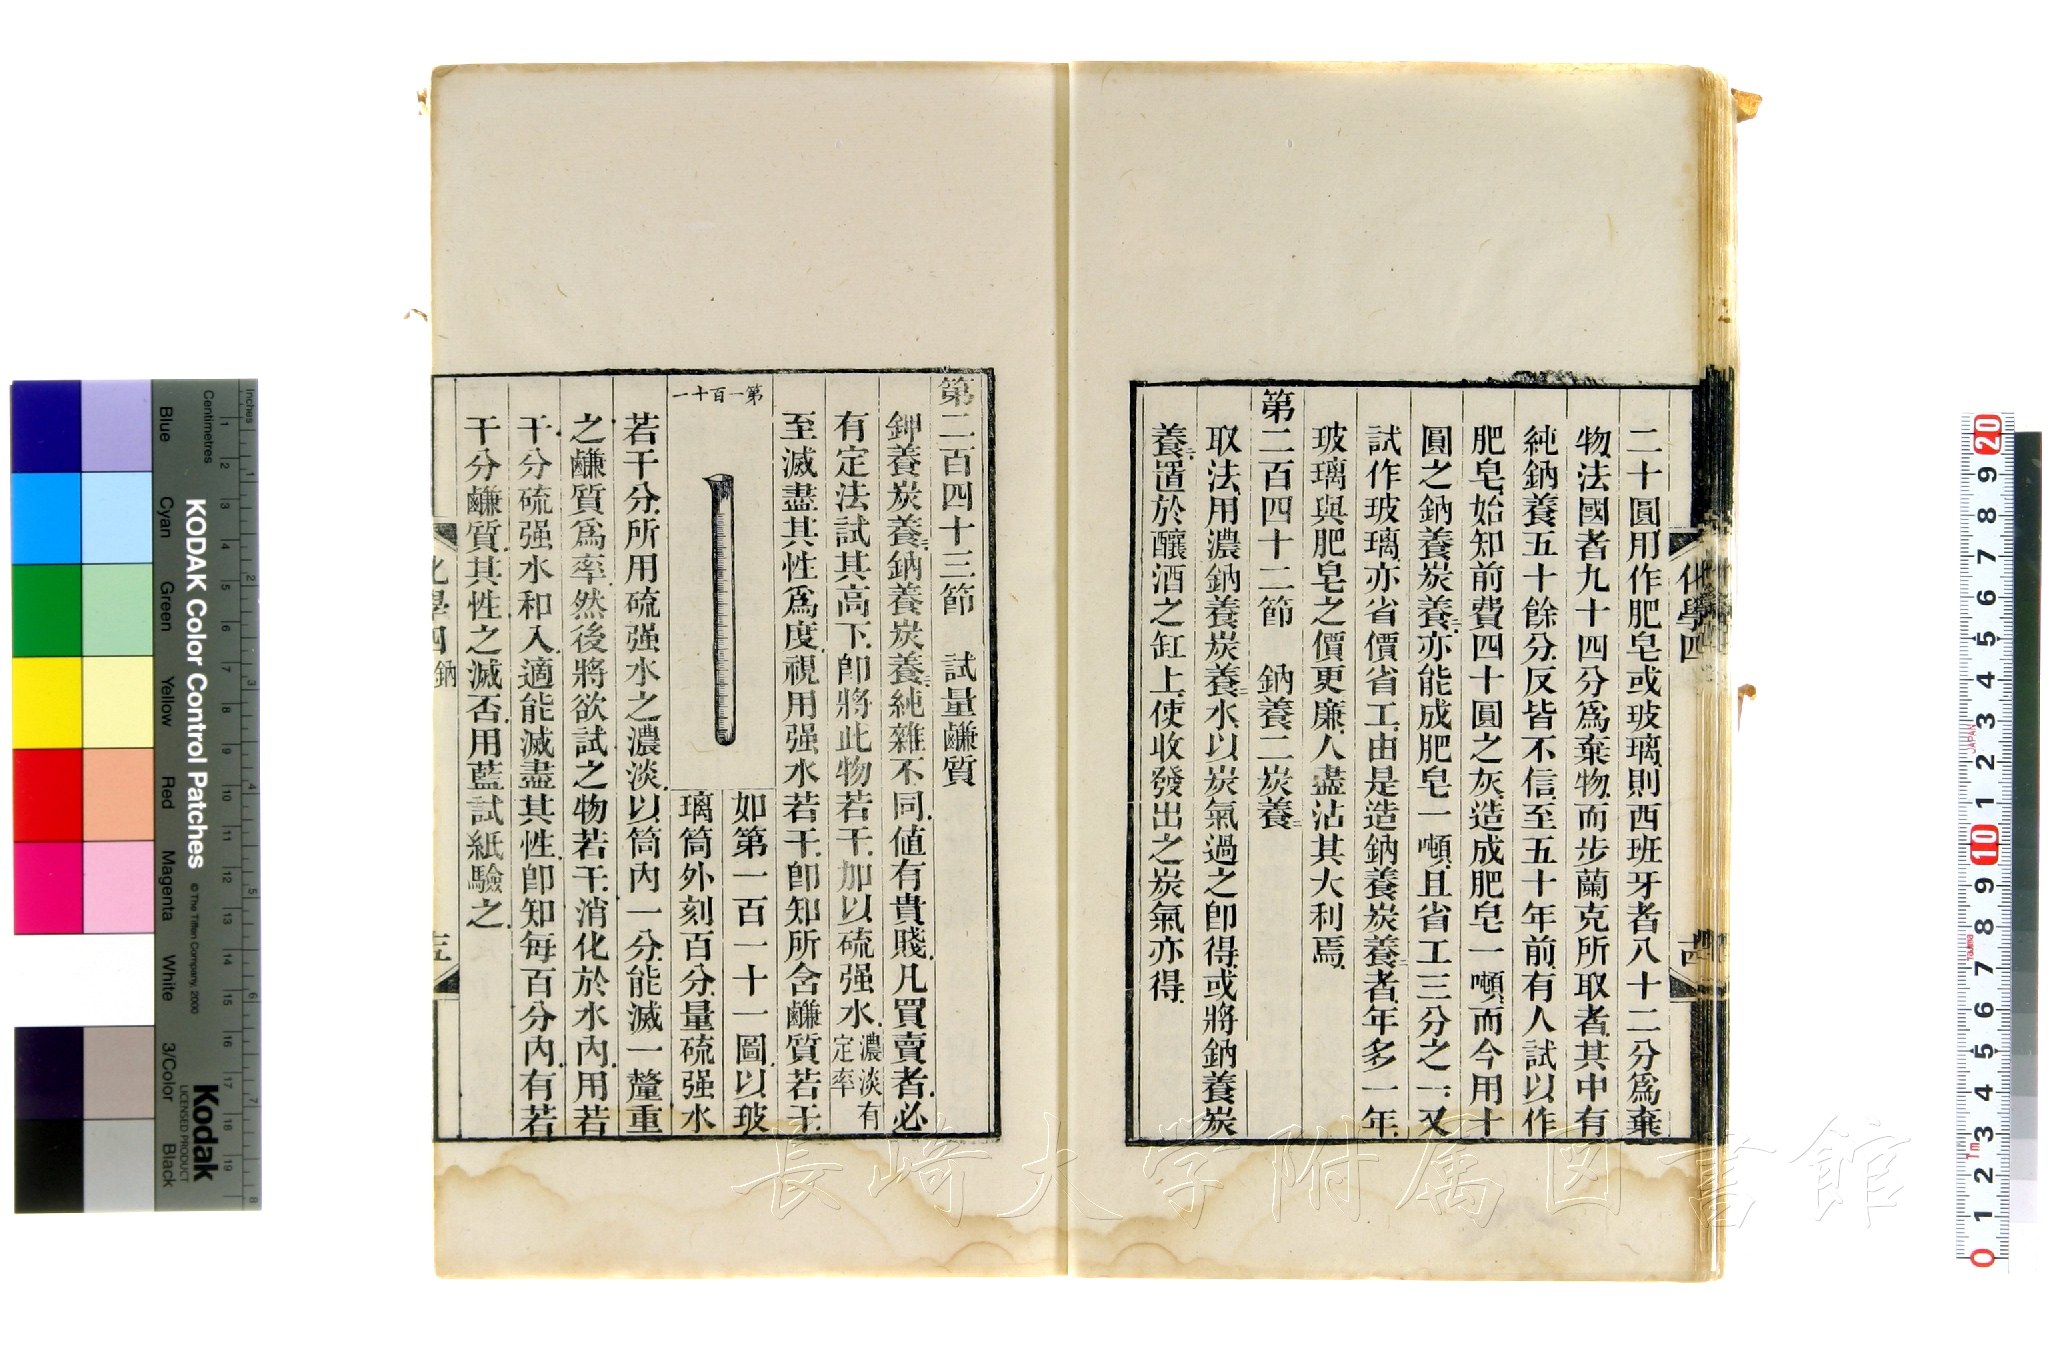 二十圓用作肥皂或玻璃則西班牙者八十二分爲棄
物法國者九十四分爲棄物而步蘭克所取者其中有
純鈉養五十餘分反皆不信至五十年前有人試以作
肥皂始知前費四十圓之灰造成肥皂一噸而今用十
圓之鈉養炭養二亦能成肥皂一噸且省工三分之一又
試作玻璃亦省價省工由是造鈉養炭養二者年多一年
玻璃與肥皂之價更廉人盡沾其大利焉
第二百四十二節 鈉養二炭養二
取法用濃鈉養炭養二水以炭氣過之卽得或將鈉養炭
養二置於釀酒之缸上使收發出之炭氣亦得
化學四
第二百四十三節 試量鹻質
鉀養炭養二鈉養炭養二純雜不同値有貴賤凡買賣者必
有定法試其高下卽將此物若干加以硫强水濃淡有定率
至滅盡其性爲度視用强水若干卽知所含鹻質若干
第一百十一
如第一百一十一圖以玻
璃筒外刻百分量硫强水
若干分所用硫强水之濃淡以筒內一分能滅一釐重
之鹻質爲率然後將欲試之物若干消化於水內用若
干分硫强水和入適能滅盡其性卽知每百分內有若
干分鹻質其性之滅否用藍試紙驗之
化學四 鈉
長崎大学附属図書館
KODAK Color Control Patches
© The Tiffen Company, 2000
Kodak
LICENSED PRODUCT
Blue
Cyan
Green
Yellow
Red
Magenta
White
3/Color
Black
Inches
Centimetres